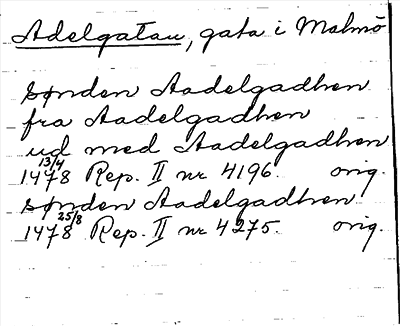 Adelgatan, gata i Malmö
sønden Aadelgadhen
fra Aadelgadhen
ud med Aadelgadhen
1478 13/4 Rep. II nr 4196. orig.
sønden Aadelgadhen
1478 25/8 Rep. II nr 4275. orig.